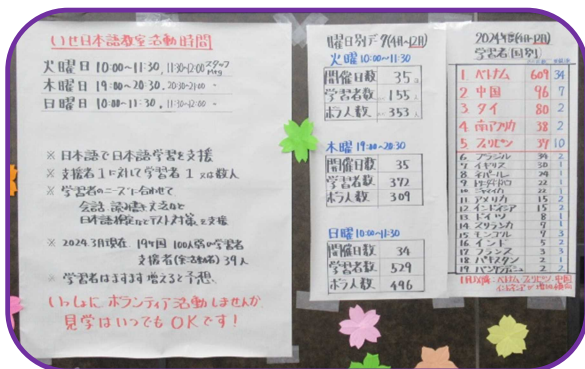 いせ日本語教室活動時間
火曜日 10:00~11:30, 11:30~12:00 スタッフ
Mtg
木曜日 19:00~20:30, 20:30~21:00 〃
日曜日 10:00~11:30, 11:30~12:00 〃
※ 日本語で日本語学習を支援
※ 支援者1に対して学習者1又は数人
※ 学習者のニーズに合わせて
会話、読み書き、文法など
日本語検定などテスト対策を支援
※ 2024.3月現在 19ヶ国 100人弱の学習者
支援者(全活動者) 39人
※ 学習者はますます増えると予想
いっしょに ボランティア活動しませんか
見学はいつでもOKです!
曜日別データ(4月~12月)
火曜 10:00~11:30
開催日数 35
学習者数 155
ボラ人数 353人
木曜 19:00~20:30
開催日数 35
学習者数 372
ボラ人数 309
日曜 10:00~11:30
開催日数 34
学習者数 529
ボラ人数 496
2024年度(4月~12月)
学習者(国別)
1 ベトナム 609 34
2 中国 96 7
3 タイ 80 2
4 南アフリカ 38 2
5 フィリピン 37 10
6 ブラジル 34 2
7 イギリス 30 1
8 ネパール 24 1
9 22 1
10 ジャマイカ 22 1
11 アメリカ 15 2
12 インドネシア 15 2
13 ドイツ 8 1
14 スリランカ 7 1
15 モンゴル 7 3
16 インド 5 2
17 フランス 3 3
18 パキスタン 2 1
19 2 2